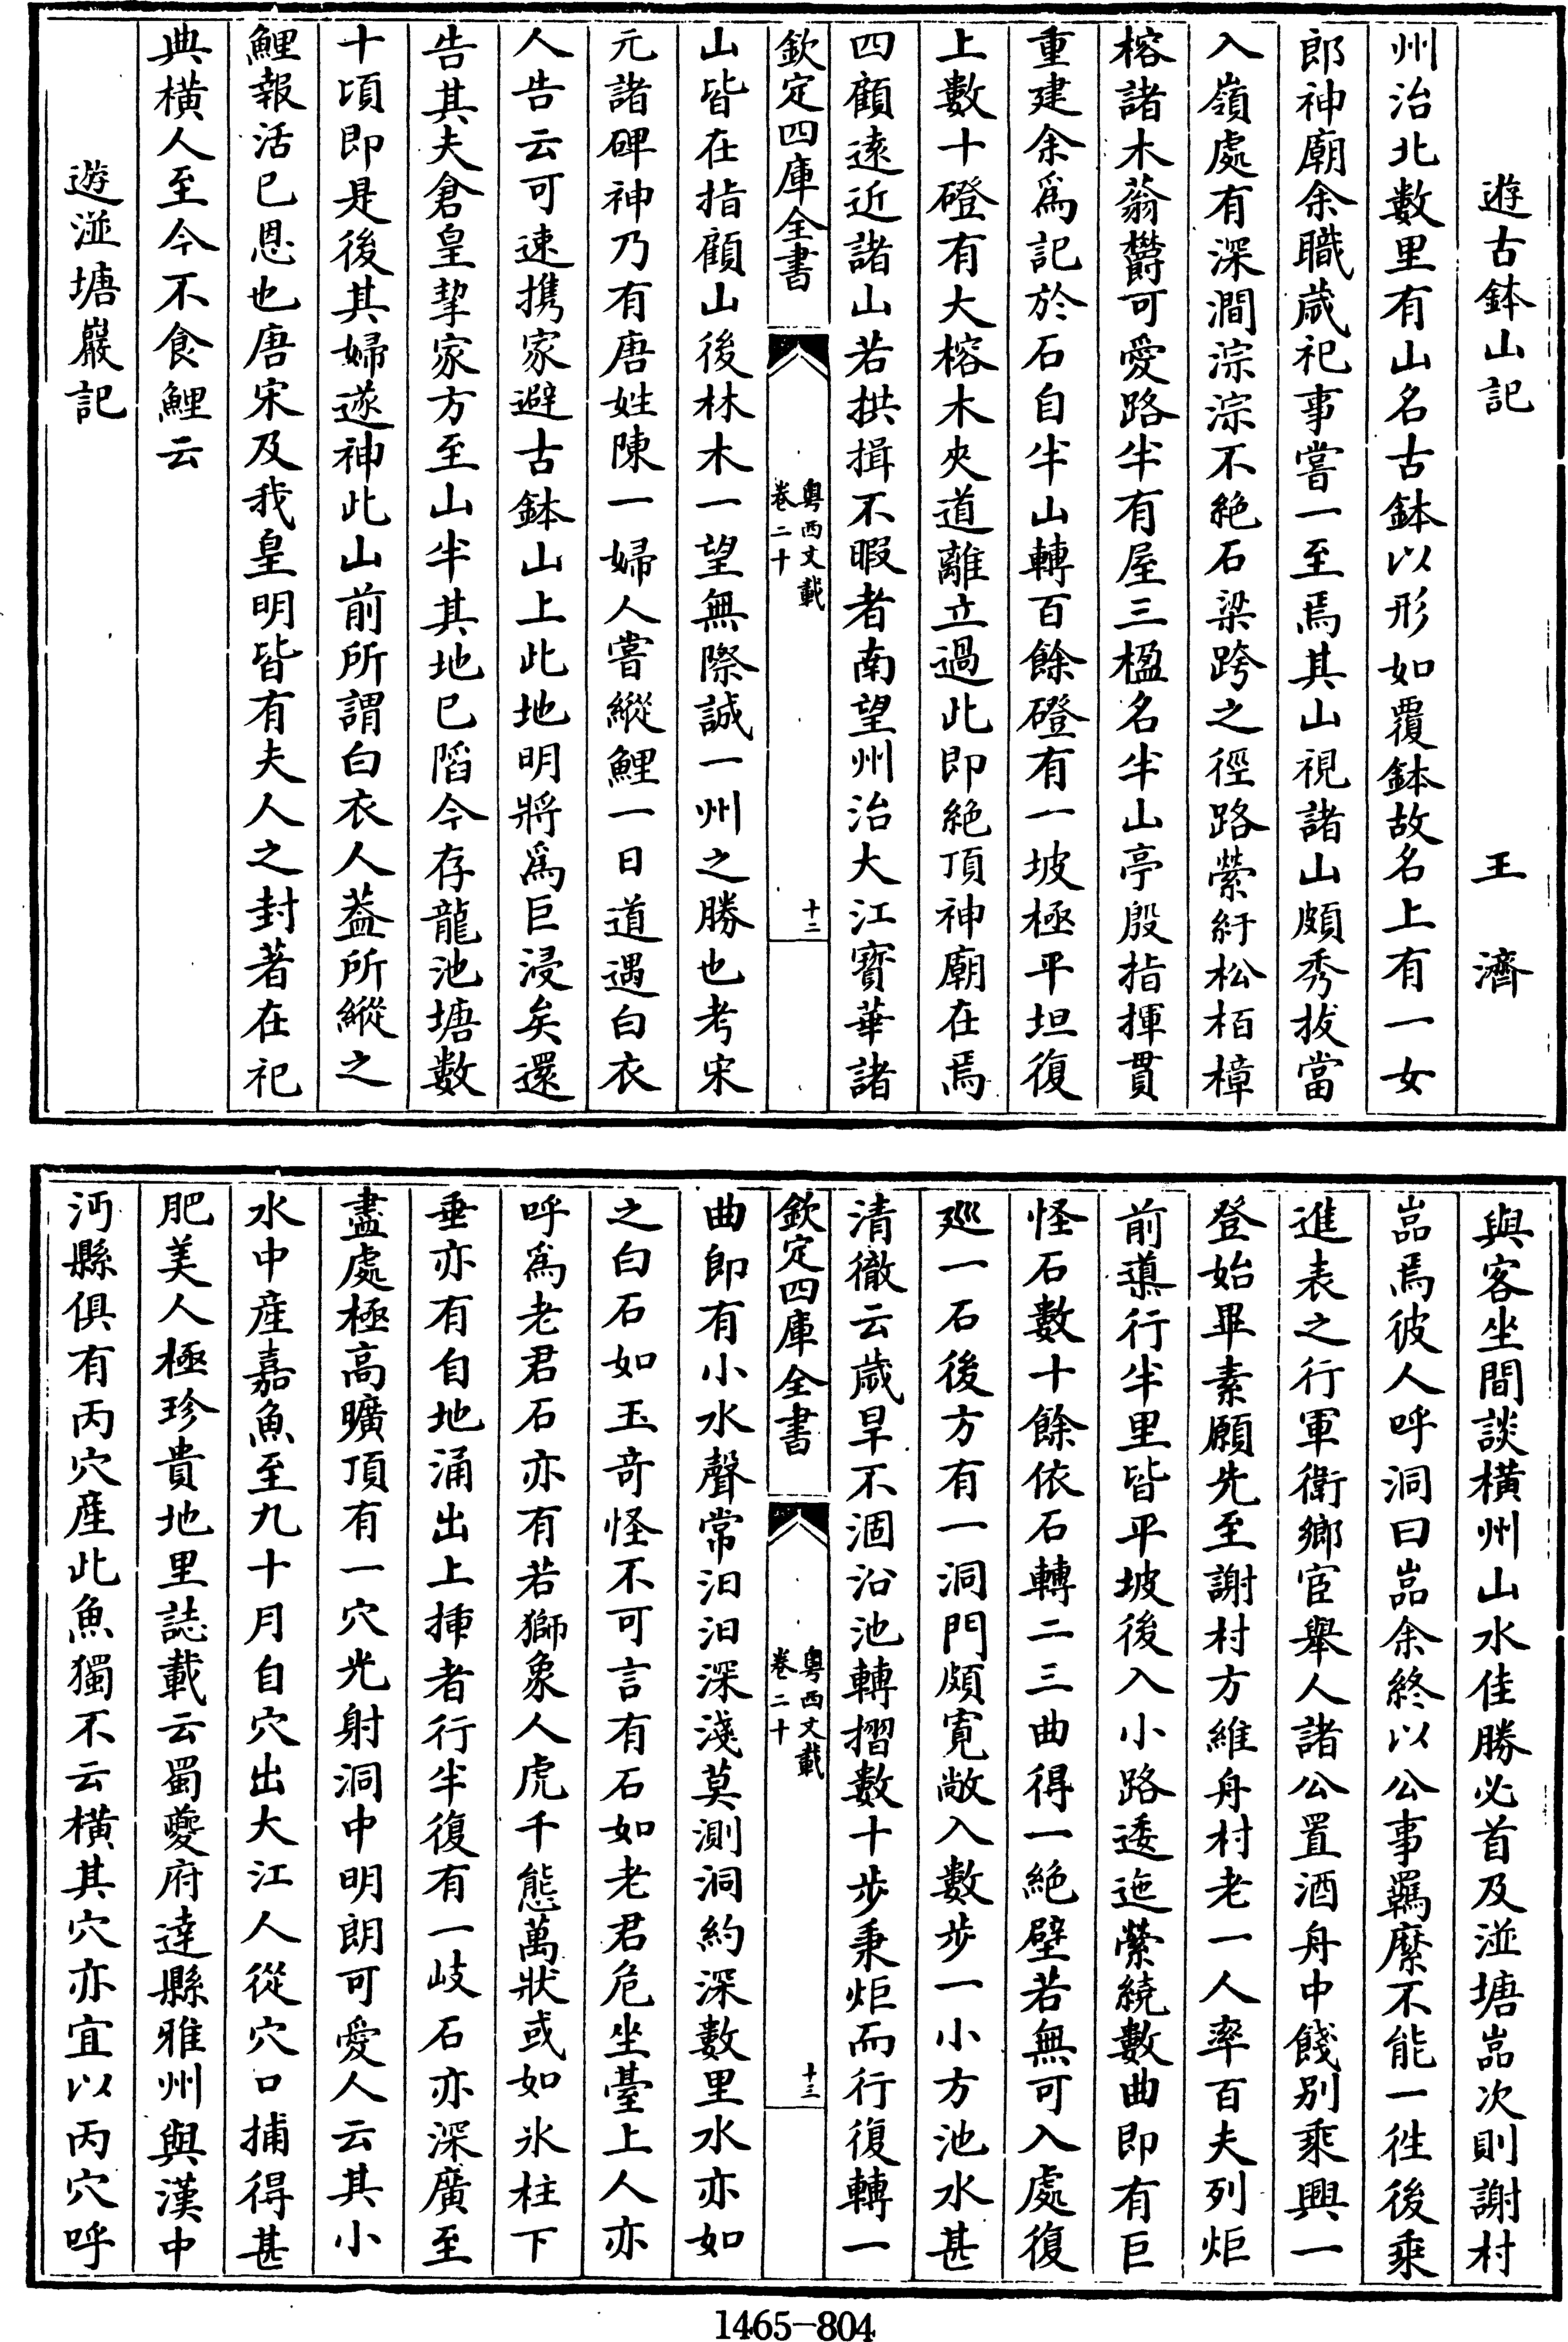 遊古鉢山記　王濟
州治北數里有山名古鉢以形如覆鉢故名上有一女
郎神廟余職歲祀事嘗一至焉其山視諸山頗秀拔當
入嶺處有深澗淙淙不絶石梁跨之徑路縈紆松栢樟
榕諸木蓊欝可愛路半有屋三楹名半山亭殷指揮貫
重建余為記於石自半山轉百餘磴有一坡極平坦復
上數十磴有大榕木夾道離立過此即絶頂神廟在焉
四顧遠近諸山若拱揖不暇者南望州治大江寳華諸
欽定四庫全書
粤西文載
卷二十
十二
山皆在指顧山後林木一望無際誠一州之勝也考宋
元諸碑神乃有唐姓陳一婦人嘗縱鯉一日道遇白衣
人告云可速携家避古鉢山上此地明將為巨浸矣還
告其夫倉皇挈家方至山半其地已䧟今存龍池塘數
十頃即是後其婦遂神此山前所謂白衣人葢所縱之
鯉報活已恩也唐宋及我皇明皆有夫人之封著在祀
典橫人至今不食鯉云
遊湴塘巖記
與客坐間談橫州山水佳勝必首及湴塘嵓次則謝村
嵓焉彼人呼洞曰嵓余終以公事羈縻不能一徃後乘
進表之行軍衛鄉宦舉人諸公置酒舟中餞别乘興一
登始畢素願先至謝村方維舟村老一人率百夫列炬
前導行半里皆平坡後入小路逶迤縈繞數曲即有巨
怪石數十餘依石轉二三曲得一絶壁若無可入處復
廵一石後方有一洞門頗寛敞入數步一小方池水甚
清徹云歲旱不涸沿池轉摺數十步秉炬而行復轉一
欽定四庫全書
粤西文載
卷二十
十三
曲即有小水聲常汩汩深淺莫測洞約深數里水亦如
之白石如玉竒怪不可言有石如老君危坐臺上人亦
呼為老君石亦有若獅象人虎千態萬狀或如氷柱下
垂亦有自地涌出上挿者行半復有一岐石亦深廣至
盡處極高曠頂有一穴光射洞中明朗可愛人云其小
水中産嘉魚至九十月自穴出大江人從穴口捕得甚
肥美人極珍貴地里誌載云蜀夔府達縣雅州與漢中
沔縣俱有丙穴産此魚獨不云橫其穴亦宜以丙穴呼
1465-804